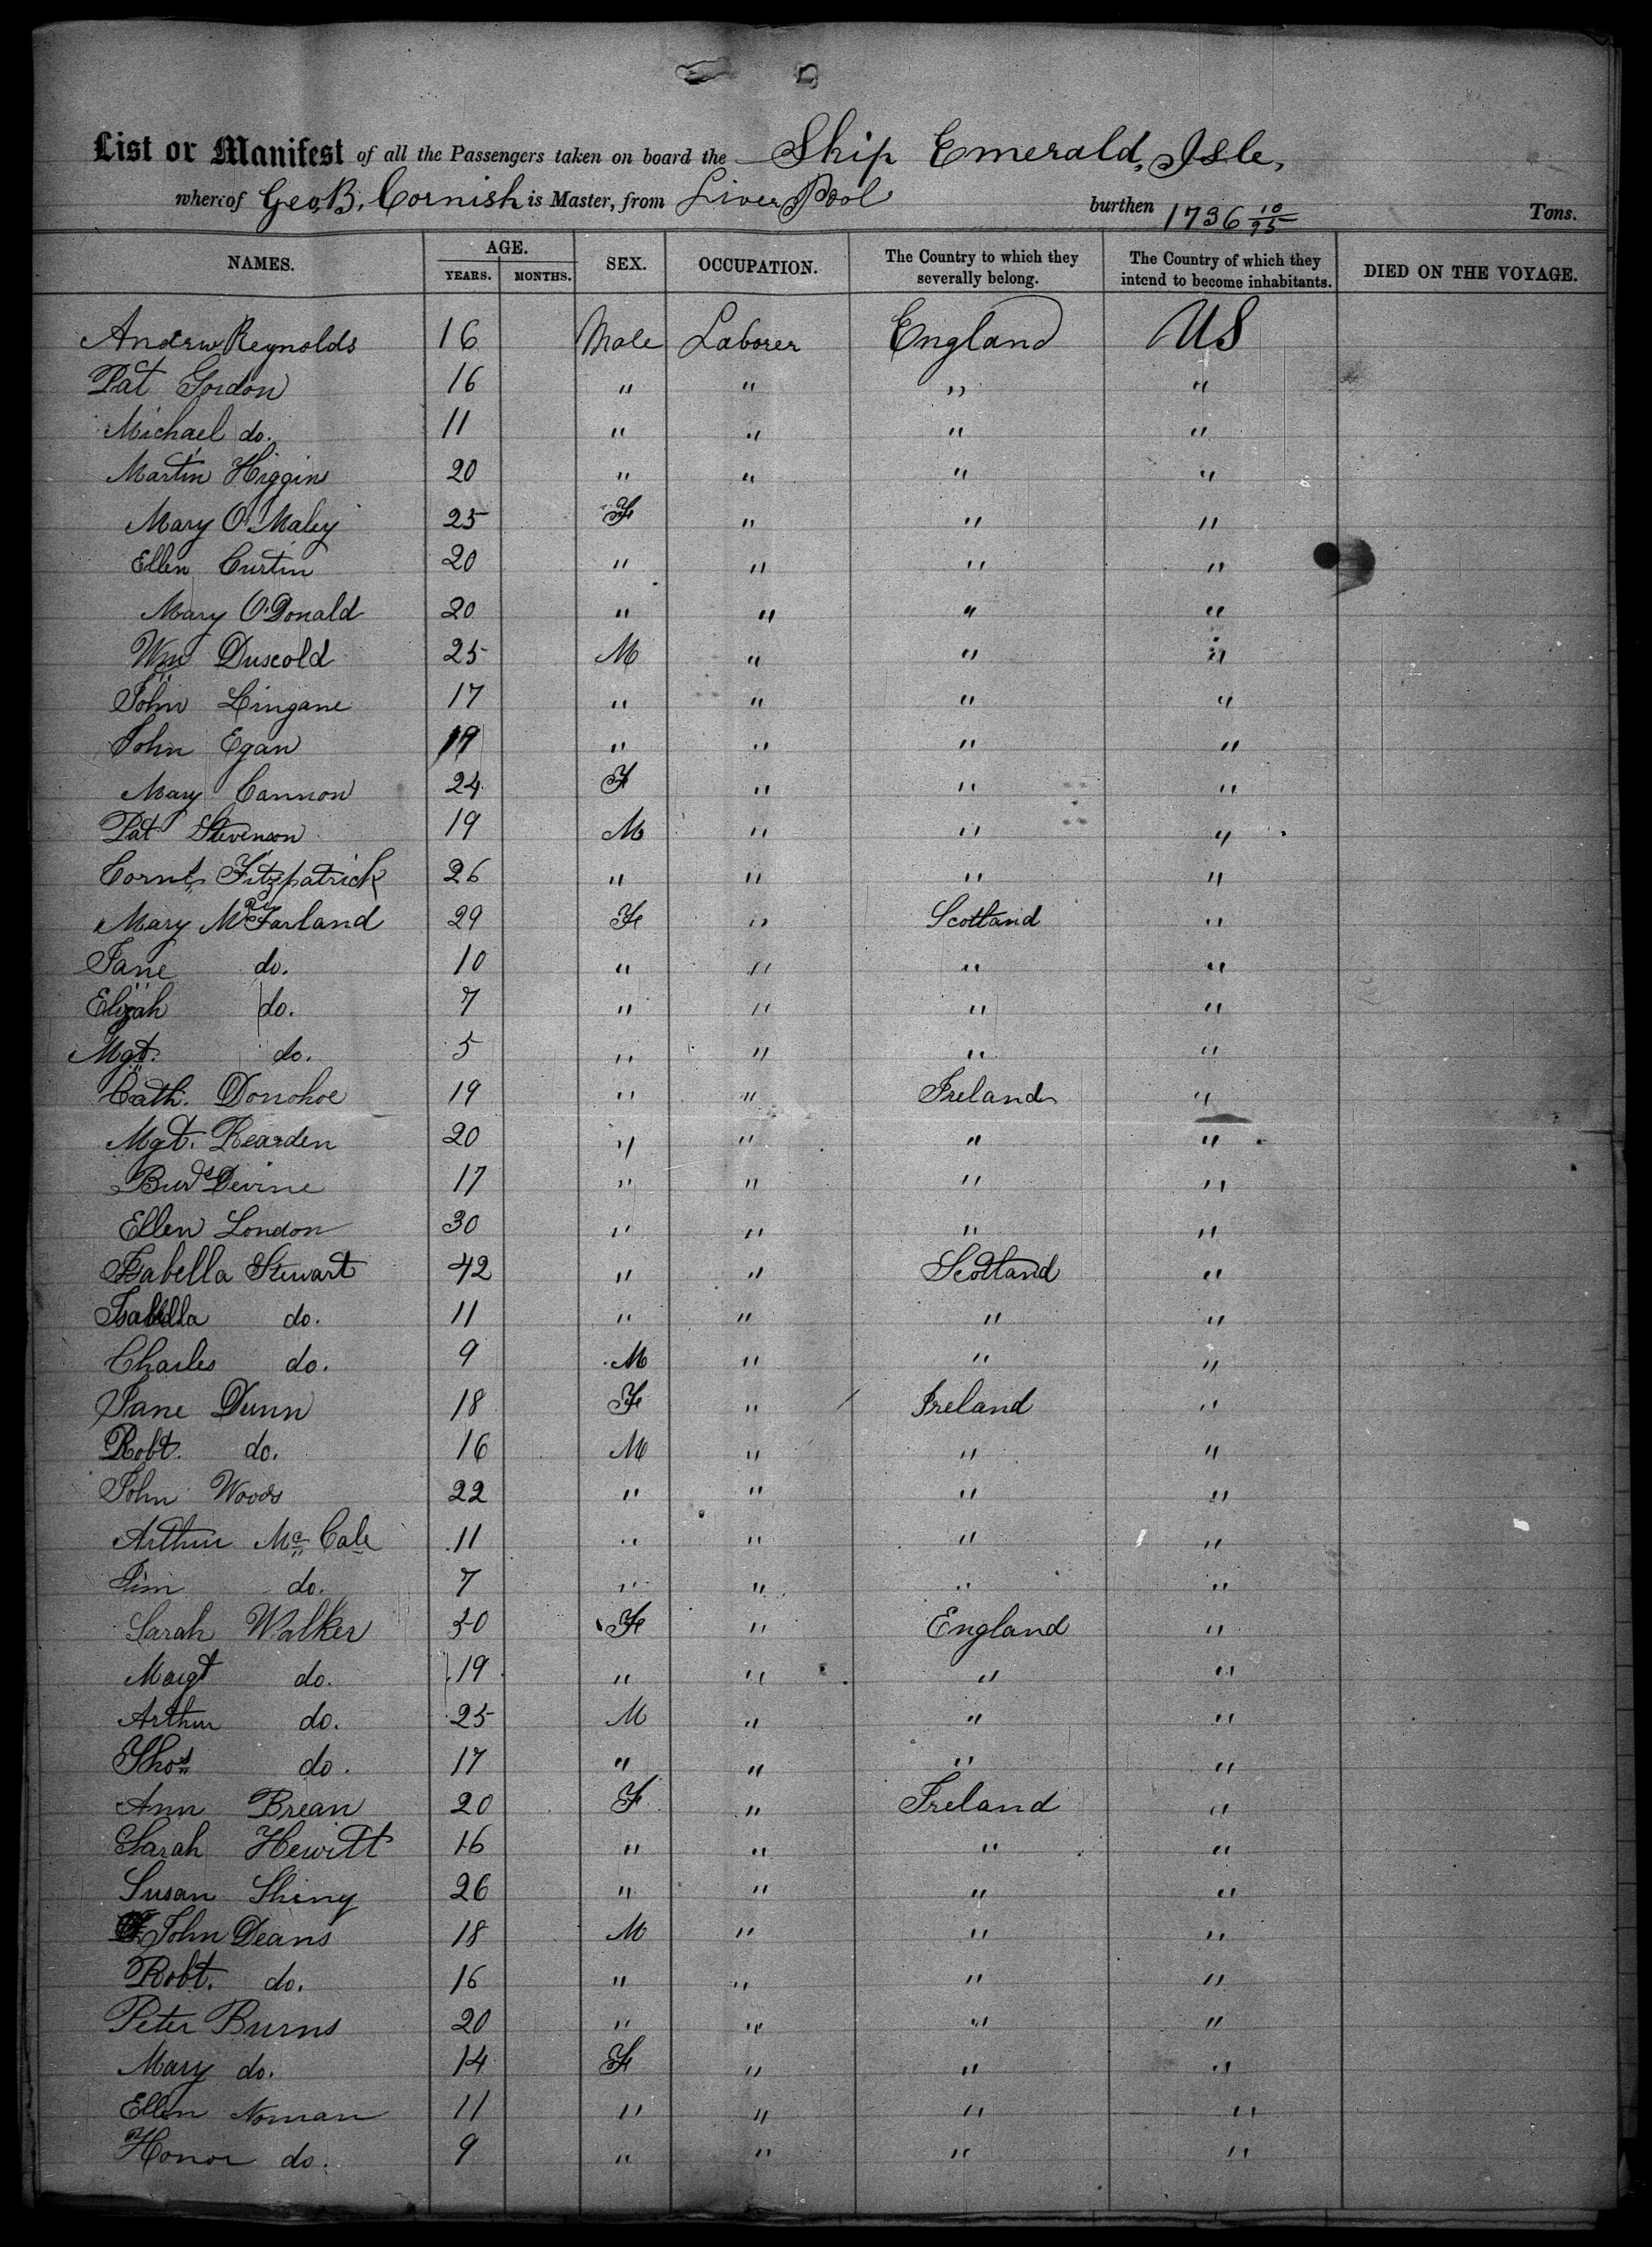 List or Manifest of all the Passengers taken on board the Ship Emerald Isle,
whereof Geo. B. Cornish is Master, from Liverpool burthen 1736 10/95 Tons.
NAMES. AGE. YEARS. MONTHS. SEX. OCCUPATION. The Country to which they severally belong. The Country of which they intend to become inhabitants. DIED ON THE VOYAGE.
Andrw Reynolds 16 Male Laborer England US
Pat Gordon 16 " " " "
Michael do. 11 " " " "
Martin Higgins 20 " " " "
Mary O'Maley 25 F " " "
Ellen Curtin 20 " " " "
Mary O'Donald 20 " " " "
Wm Duscold 25 M " " "
John Lingane 17 " " " "
John Egan 19 " " " "
Mary Cannon 24 F " " "
Pat Stevenson 19 M " " "
Corns Fitzpatrick 26 " " " "
Mary McFarland 29 Fe " Scotland "
Jane do. 10 " " " "
Elizah do. 7 " " " "
Mgt. do. 5 " " " "
Cath. Donohoe 19 " " Ireland "
Mgt. Rearden 20 " " " "
Devine 17 " " " "
Ellen London 30 " " " "
Isabella Stewart 42 " " Scotland "
Isabella do. 11 " " " "
Charles do. 9 M " " "
Jane Dunn 18 Fe " Ireland "
Robt. do. 16 M " " "
John Woods 22 " " " "
Arthur Mc Cale 11 " " " "
Jim do. 7 " " " "
Sarah Walker 50 Fe " England "
Margt do. 19 " " " "
Arthur do. 25 M " " "
Thos do. 17 " " " "
Ann Brean 20 F " Ireland "
Sarah Hewitt 16 " " " "
Susan Shiny 26 " " " "
John Deans 18 M " " "
Robt. do. 16 " " " "
Peter Burns 20 " " " "
Mary do. 14 F " " "
Ellen Noman 11 " " " "
Honor do. 9 " " " "